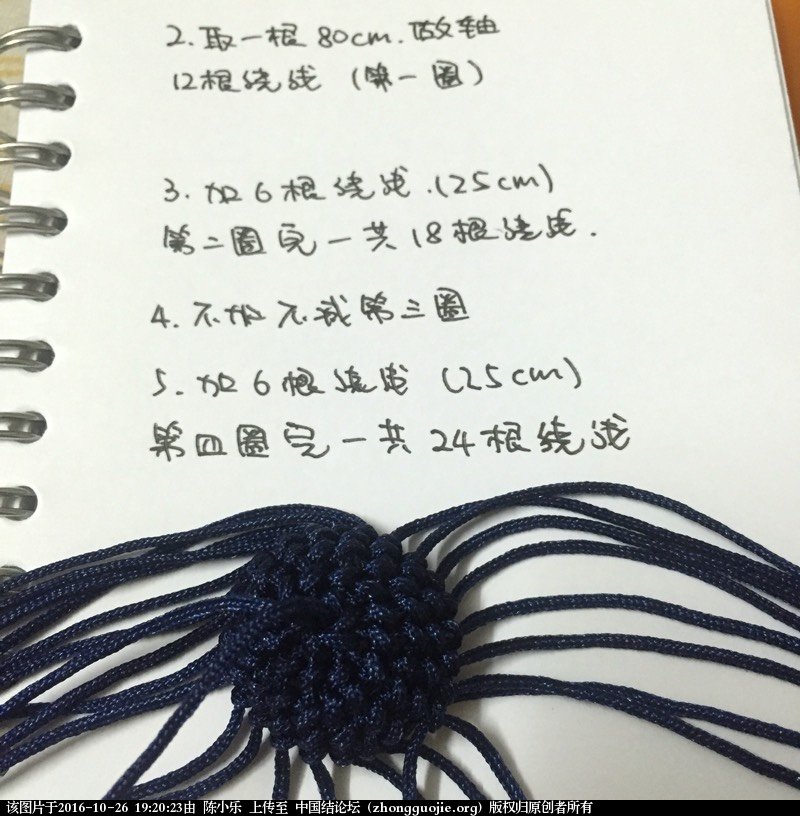 2. 取一根 80cm. 做轴
12根绕线 (第一圈)
3. 加6根绕线.(25cm)
第二圈完一共18根绕线.
4. 不加不减第三圈
5. 加6根绕线 (25cm)
第四圈完一共24根绕线
该图片于2016-10-26 19:20:23由 陈小乐 上传至 中国结论坛 (zhongguojie.org) 版权归原创者所有